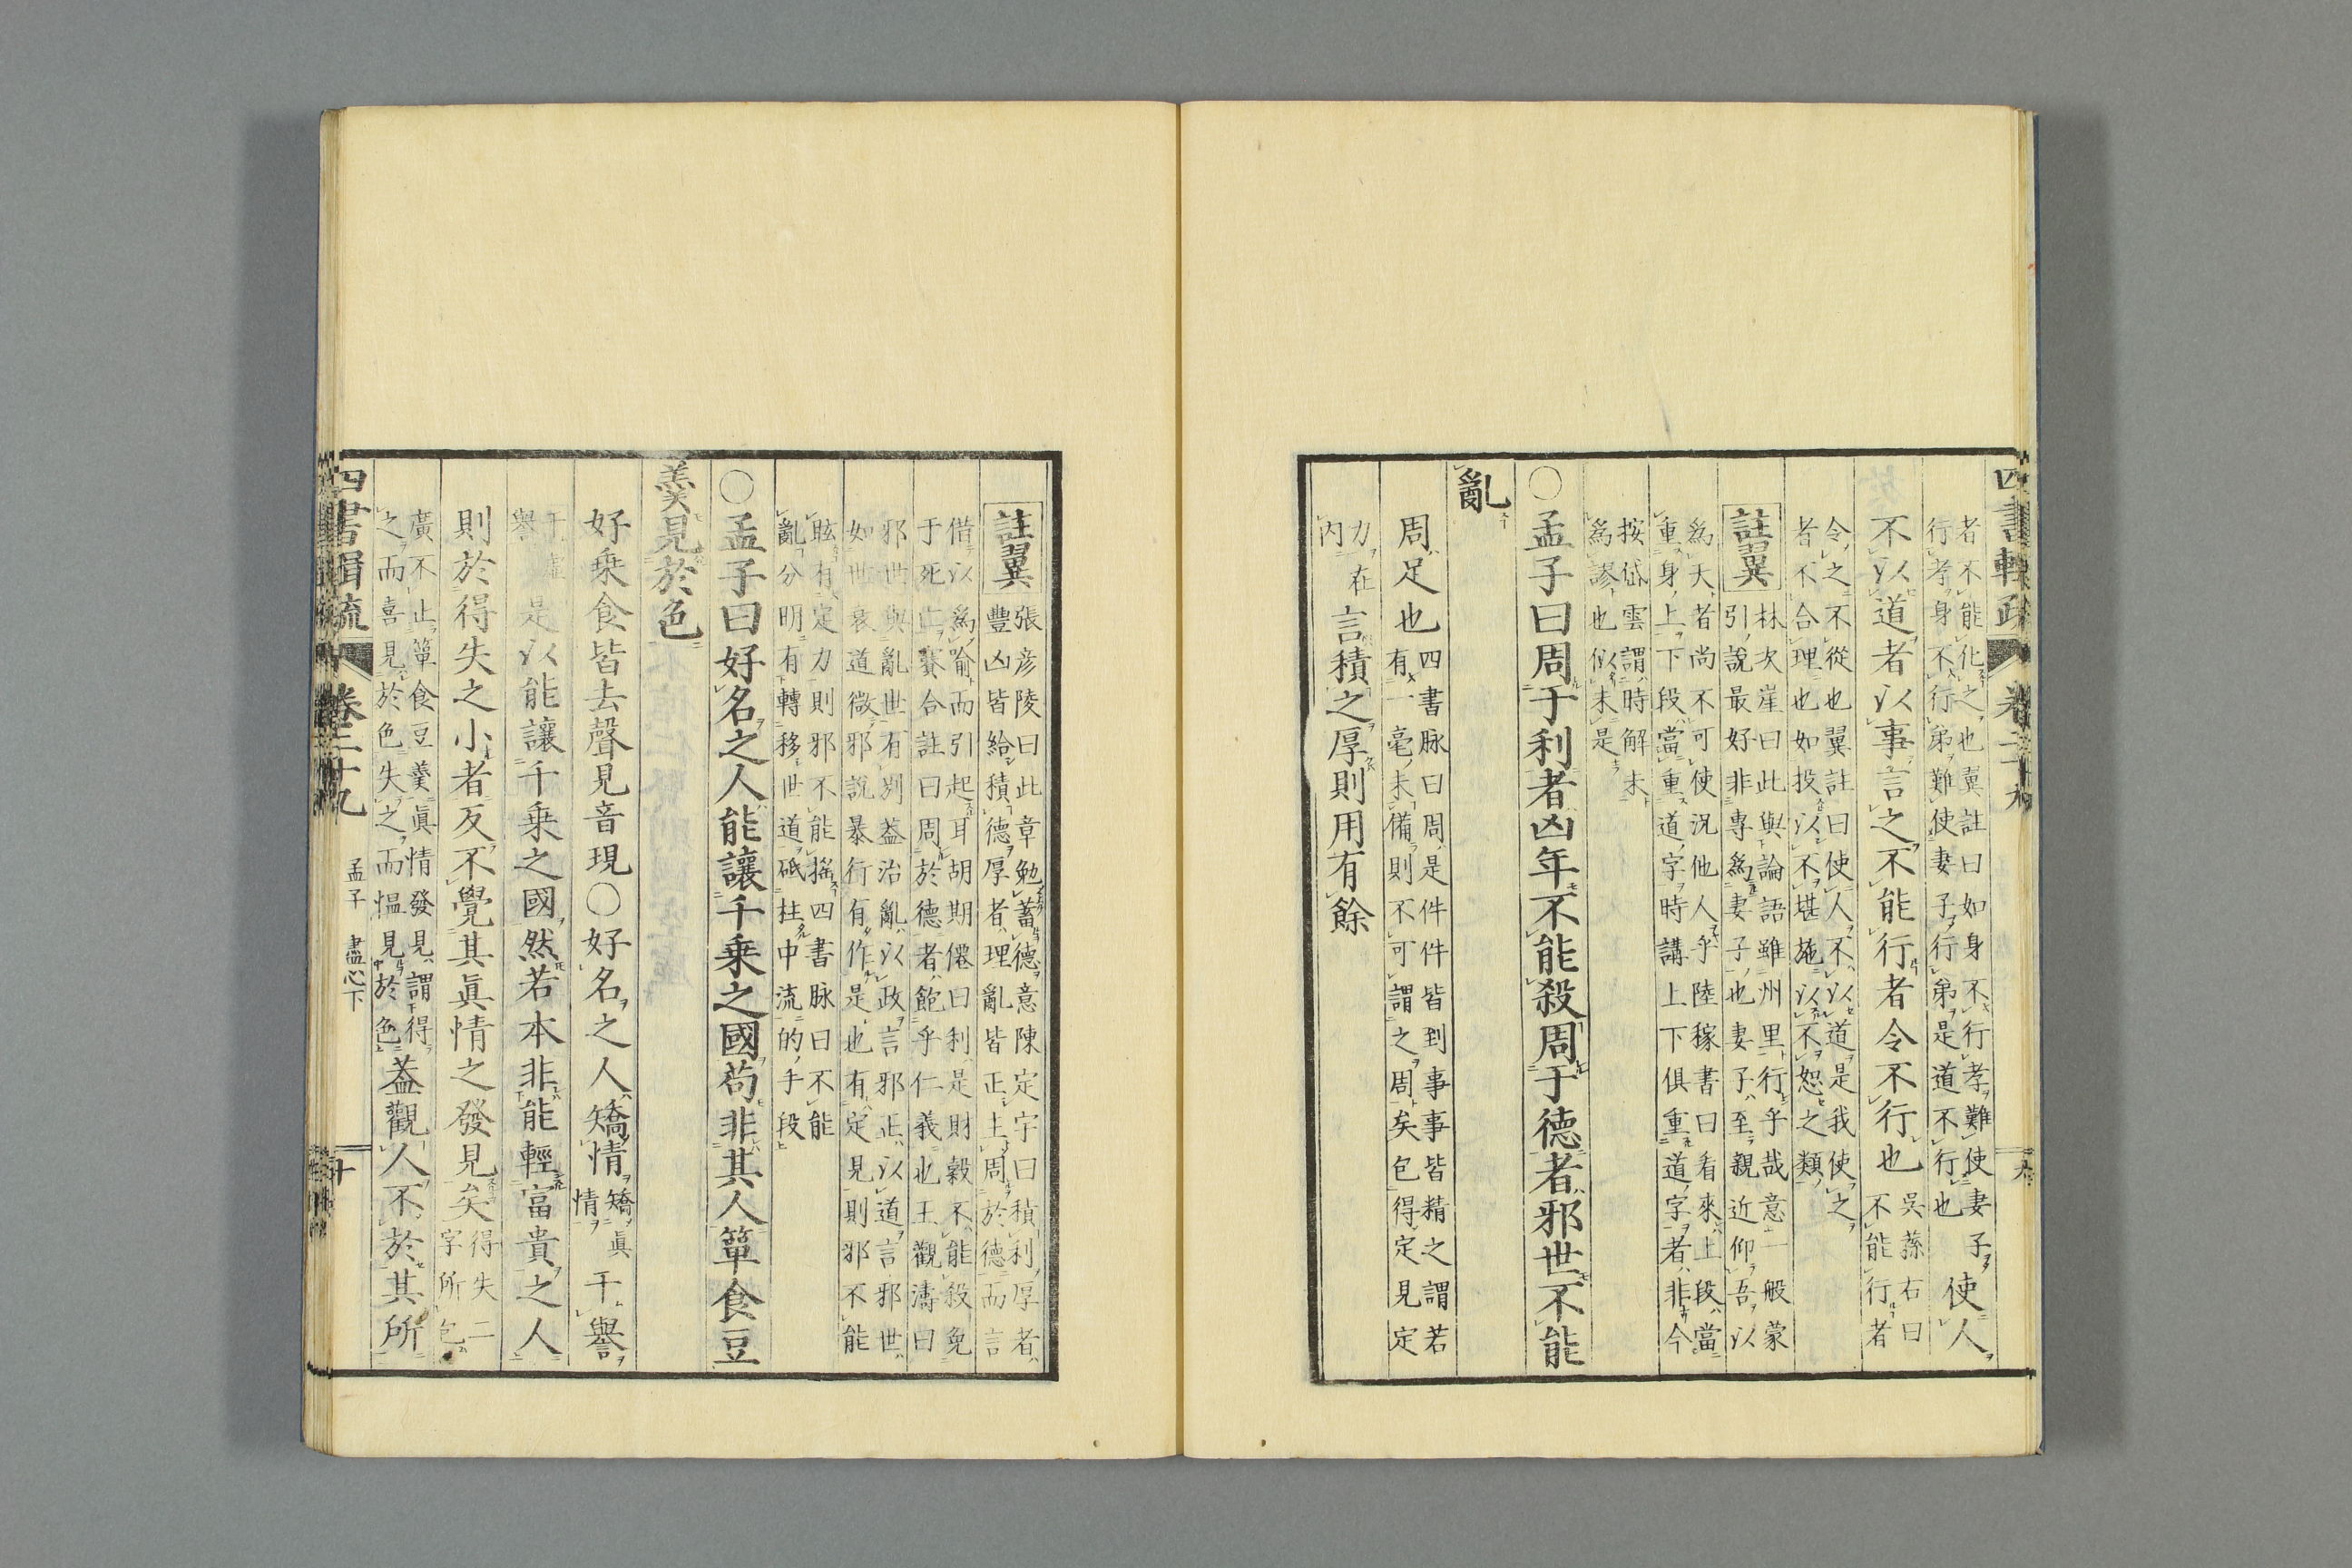 者不能化之也翼註曰如身不行孝難使妻子
行孝身不行弟難使妻子行弟是道不行也
使人
不以道者以事言之不能行者令不行也
吳蓀右曰
不能行者
令之不從也翼註曰使人不以道是我使之
者不合理也如投以不堪施以不恕之類
註翼
林次崖曰此與論語雖州里行乎哉意一般蒙
引說最好非專爲妻子也妻子至親近仰吾以
爲天者尚不可使況他人乎陸稼書曰看來上段當
重身上下段當重道字時講上下俱重道字者非今
按岱雲謂時解未
爲謬也似未是
○孟子曰周于利者凶年不能殺周于德者邪世不能
亂
周足也
四書脉曰周是件件皆到事事皆精之謂若
有一毫未備則不可謂之周矣包得定見定
力在
內
言積之厚則用有餘
註翼
張彦陵曰此章勉蓄德意陳定宇曰積利厚者
豐凶皆給積德厚者理亂皆正主周於德而言
借以爲喻而引起耳胡期僊曰利是財穀不能殺免
于死亡賽合註曰周於德者飽乎仁義也王觀濤曰
邪世與亂世有別葢治亂以政言邪正以道言邪世
如世衰道微邪說暴行有作是也有定見則邪不能
眩有定力則邪不能搖四書脉曰不能
亂分明有轉移世道砥柱中流的手段
○孟子曰好名之人能讓千乗之國苟非其人簞食豆
羹見於色
好乗食皆去聲見音現○好名之人矯情
矯眞
情
干譽
干虛
譽
是以能讓千乗之國然若本非能輕富貴之人
則於得失之小者反不覺其眞情之發見矣
得失二
字所包
廣不止簞食豆羹眞情發見謂得
之而喜見於色失之而慍見於色
葢觀人不於其所
四書輯疏
卷二十九
孟子 盡心下
十